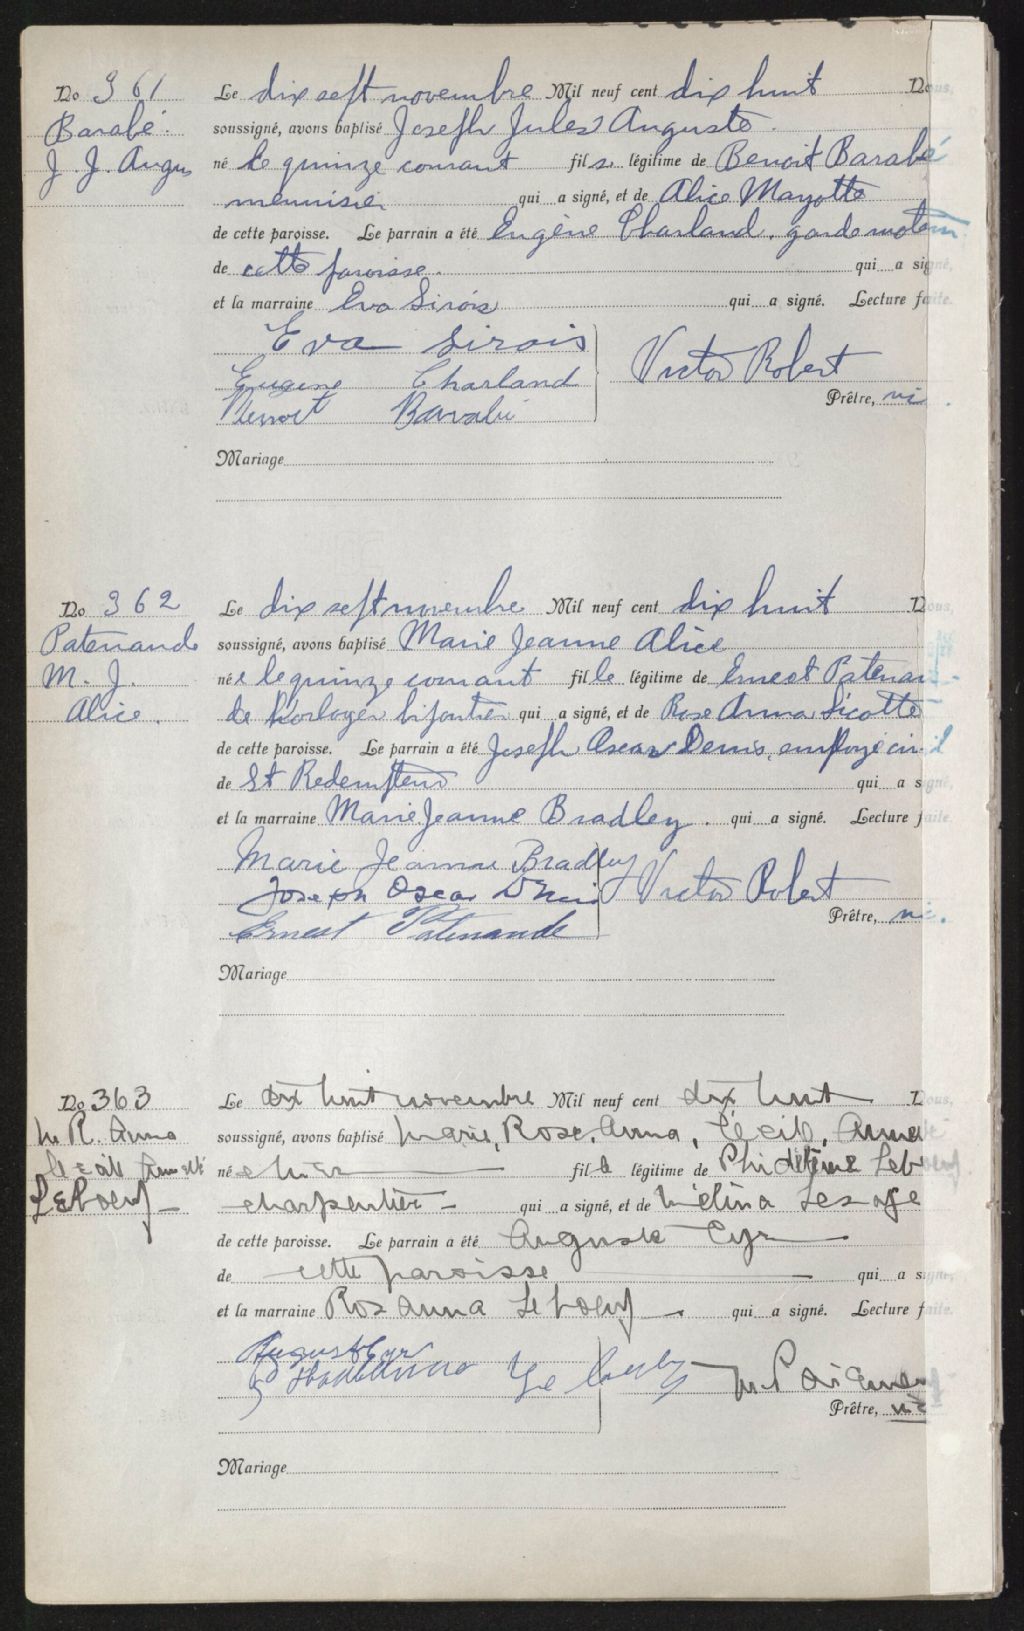 No 361
Barabé.
J. J. Augus
Le dix sept novembre Mil neuf cent dix huit Nous,
soussigné, avons baptisé Joseph Jules Auguste
né le quinze courant fils légitime de Benoit Barabé
menuisier qui a signé, et de Alice Mayotte
de cette paroisse. Le parrain a été Eugène Charland, garde moteur
de cette paroisse. qui a signé,
et la marraine Eva Sirois qui a signé. Lecture faite.
Eva Sirois
Eugene Charland
Benoit Barabé
Victor Robert
Prêtre, vic.
Mariage
No 362
Patenaude
M. J.
Alice.
Le dix sept novembre Mil neuf cent dix huit Nous,
soussigné, avons baptisé Marie Jeanne Alice
née le quinze courant fille légitime de Ernest Patenau-
de horloger bijoutier qui a signé, et de Rose Anna Sicotte
de cette paroisse. Le parrain a été Joseph Oscar Denis, employé civil
de St Redempteur qui a signé,
et la marraine Marie Jeanne Bradley. qui a signé. Lecture faite.
Marie Jeanne Bradley
Joseph Oscar Denis
Ernest Patenaude
Victor Robert
Prêtre, vic.
Mariage
No 363
M. R. Anna
Cecile Annette
LeBoeuf
Le dix huit novembre Mil neuf cent dix huit Nous,
soussigné, avons baptisé Marie, Rose, Anna, Cécile, Annette
née hier fille légitime de Philadelphe Leboeuf
charpentier qui a signé, et de Mélina Lesage
de cette paroisse. Le parrain a été Auguste Cyr
de cette paroisse qui a signé,
et la marraine Rosanna Leboeuf. qui a signé. Lecture faite.
Auguste Cyr
Leboeuf
Prêtre, vic
Mariage